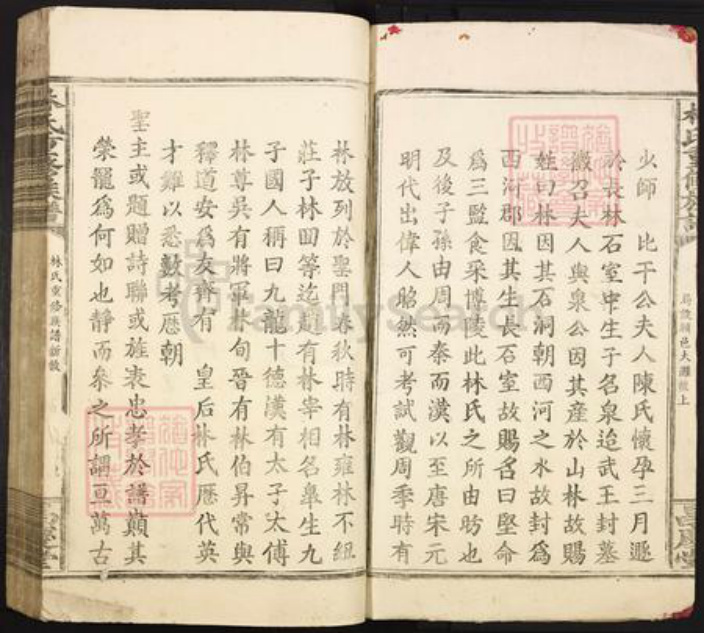 少師 比干公夫人陳氏懷孕三月遯
於長林石室中生子名泉迨武王封墓
徵召夫人與泉公因其產於山林故賜
姓曰林因其石洞朝西河之水故封爲
西河郡因其生長石室故賜名曰堅命
爲三監食采博陵此林氏之所由昉也
及後子孫由周而秦而漢以至唐宋元
明代出偉人昭然可考試觀周季時有
林放列於聖門春秋時有林雍林不紐
莊子林回等迄趙有林宰相名皐生九
子國人稱曰九龍十德漢有太子太傅
林尊吳有將軍林恂晉有林伯昇常與
釋道安爲友齊有 皇后林氏歷代英
才難以悉數考歷朝
聖主或題贈詩聯或旌表忠孝於譜巔其
榮寵爲何如也靜而參之所謂亘萬古
林氏重修族譜
林氏重修族譜新敘
FamilySearch